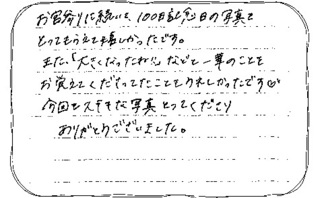 お宮参りに続いて、100日記念日の写真を
とってもらえて嬉しかったです。
また、「大きくなったね!!」などと一華のことを
お覚えてくださってたこともうれしかったです
今回もステキな写真とってくださり
ありがとうございました。